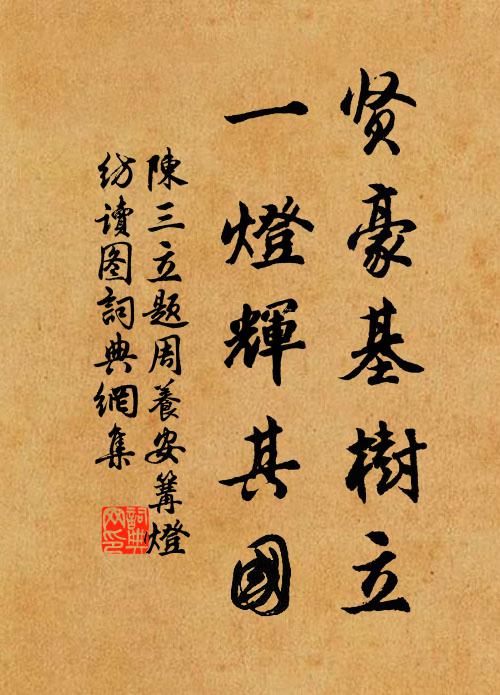 贤豪基樹立
一燈輝其國
陳三立题周養安篝燈
纺讀图詞典網集
詞典网印